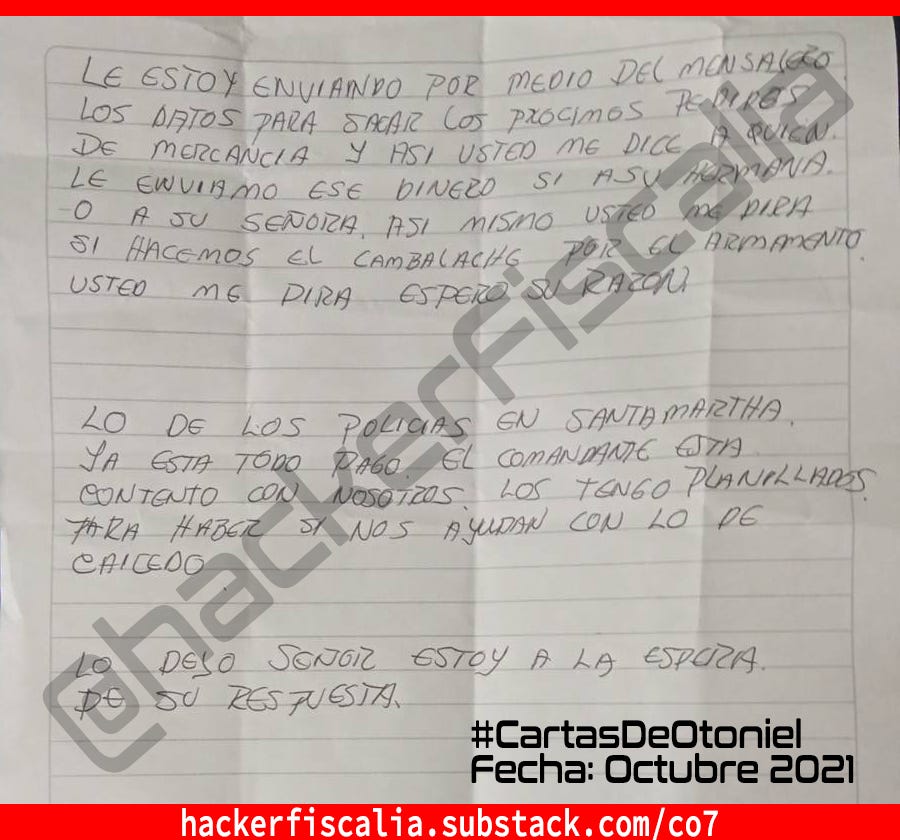 LE ESTOY ENVIANDO POR MEDIO DEL MENSALERO
LOS DATOS PARA SACAR LOS PROCIMOS PEDIDOS
DE MERCANCIA Y ASI USTED ME DICE A QUIEN.
LE ENVIAMO ESE DINERO SI ASU HERMANA.
O A SU SEÑORA. ASI MISMO USTED ME DIRA
SI HACEMOS EL CAMBALACHE POR EL ARMAMENTO.
USTED ME DIRA ESPERO SU RAZON.
LO DE LOS POLICIAS EN SANTAMARTHA.
YA ESTA TODO PAGO. EL COMANDANTE ESTA
CONTENTO CON NOSOTROS. LOS TENGO PLANILLADOS.
PARA HABER SI NOS AYUDAN CON LO DE
CAICEDO.
LO DEJO SENOR ESTOY A LA ESPERA.
DE SU RESPUESTA.
@hackerfiscalia
#CartasDeOtoniel
Fecha: Octubre 2021
hackerfiscalia.substack.com/co7